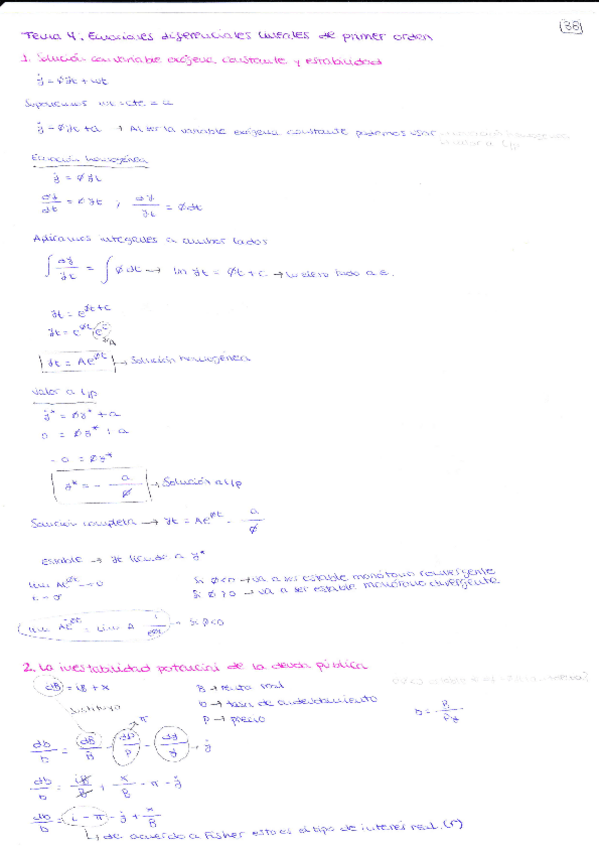 36
Tema 4. Ecuaciones diferenciales lineales de primer orden
1. Solución con variable exógena constante y estabilidad
ẏ = φyt + wt
Suponemos wt = cte = a
ẏ = φyt + a → Al ser la variable exógena constante podemos usar
Ecuación homogénea
ẏ = φyt
dy/dt = φyt ; dy/yt = φdt
Aplicamos integrales a ambos lados
∫ dy/yt = ∫ φdt → ln yt = φt + c → Lo elevo todo a e.
yt = e^φt+c
yt = e^φt e^c
→A
yt = Ae^φt → Solución homogénea
Valor a l/p
ẏ* = φy* + a
0 = φy* + a
- a = φy*
y* = - a/φ → Solución a l/p
Solución completa → yt = Ae^φt - a/φ
Estable → yt tiende a y*
lim Ae^φt → 0
Si φ<0 → va a ser estable monótono convergente
Si φ>0 → va a ser estable monótono divergente
lim Ae^φt = lim A 1/e^φt = Si φ<0
2. La inestabilidad potencial de la deuda pública
dB = iB + x
B → renta real
b → tasa de endeudamiento
P → precio
b = B/Py
Sustituyo
π
db/b = dB/B - dP/P - dy/y → ẏ
db/b = iB/B + x/B - π - ẏ
db/b = i - π - ẏ + x/B
↳ de acuerdo a Fisher esto es el tipo de interés real. (r)